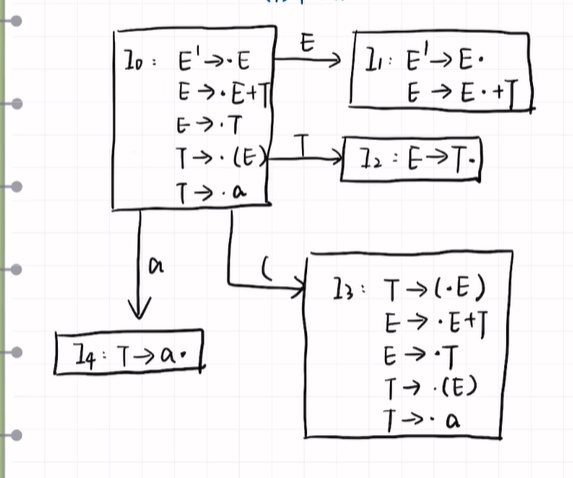 I0: E'→·E
E→·E+T
E→·T
T→·(E)
T→·a
E
I1: E'→E·
E→E·+T
T
I2: E→T·
a
(
I3: T→(·E)
E→·E+T
E→·T
T→·(E)
T→·a
I4: T→a·